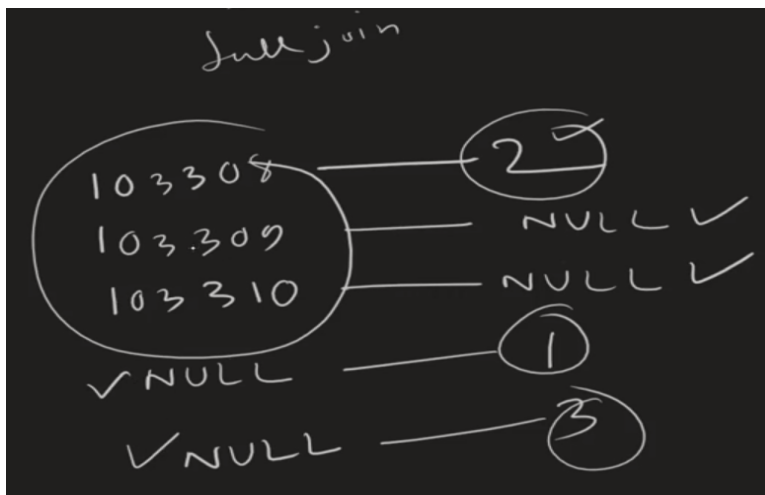 full join
103308 2
103.309 NULL
103310 NULL
NULL 1
NULL 3